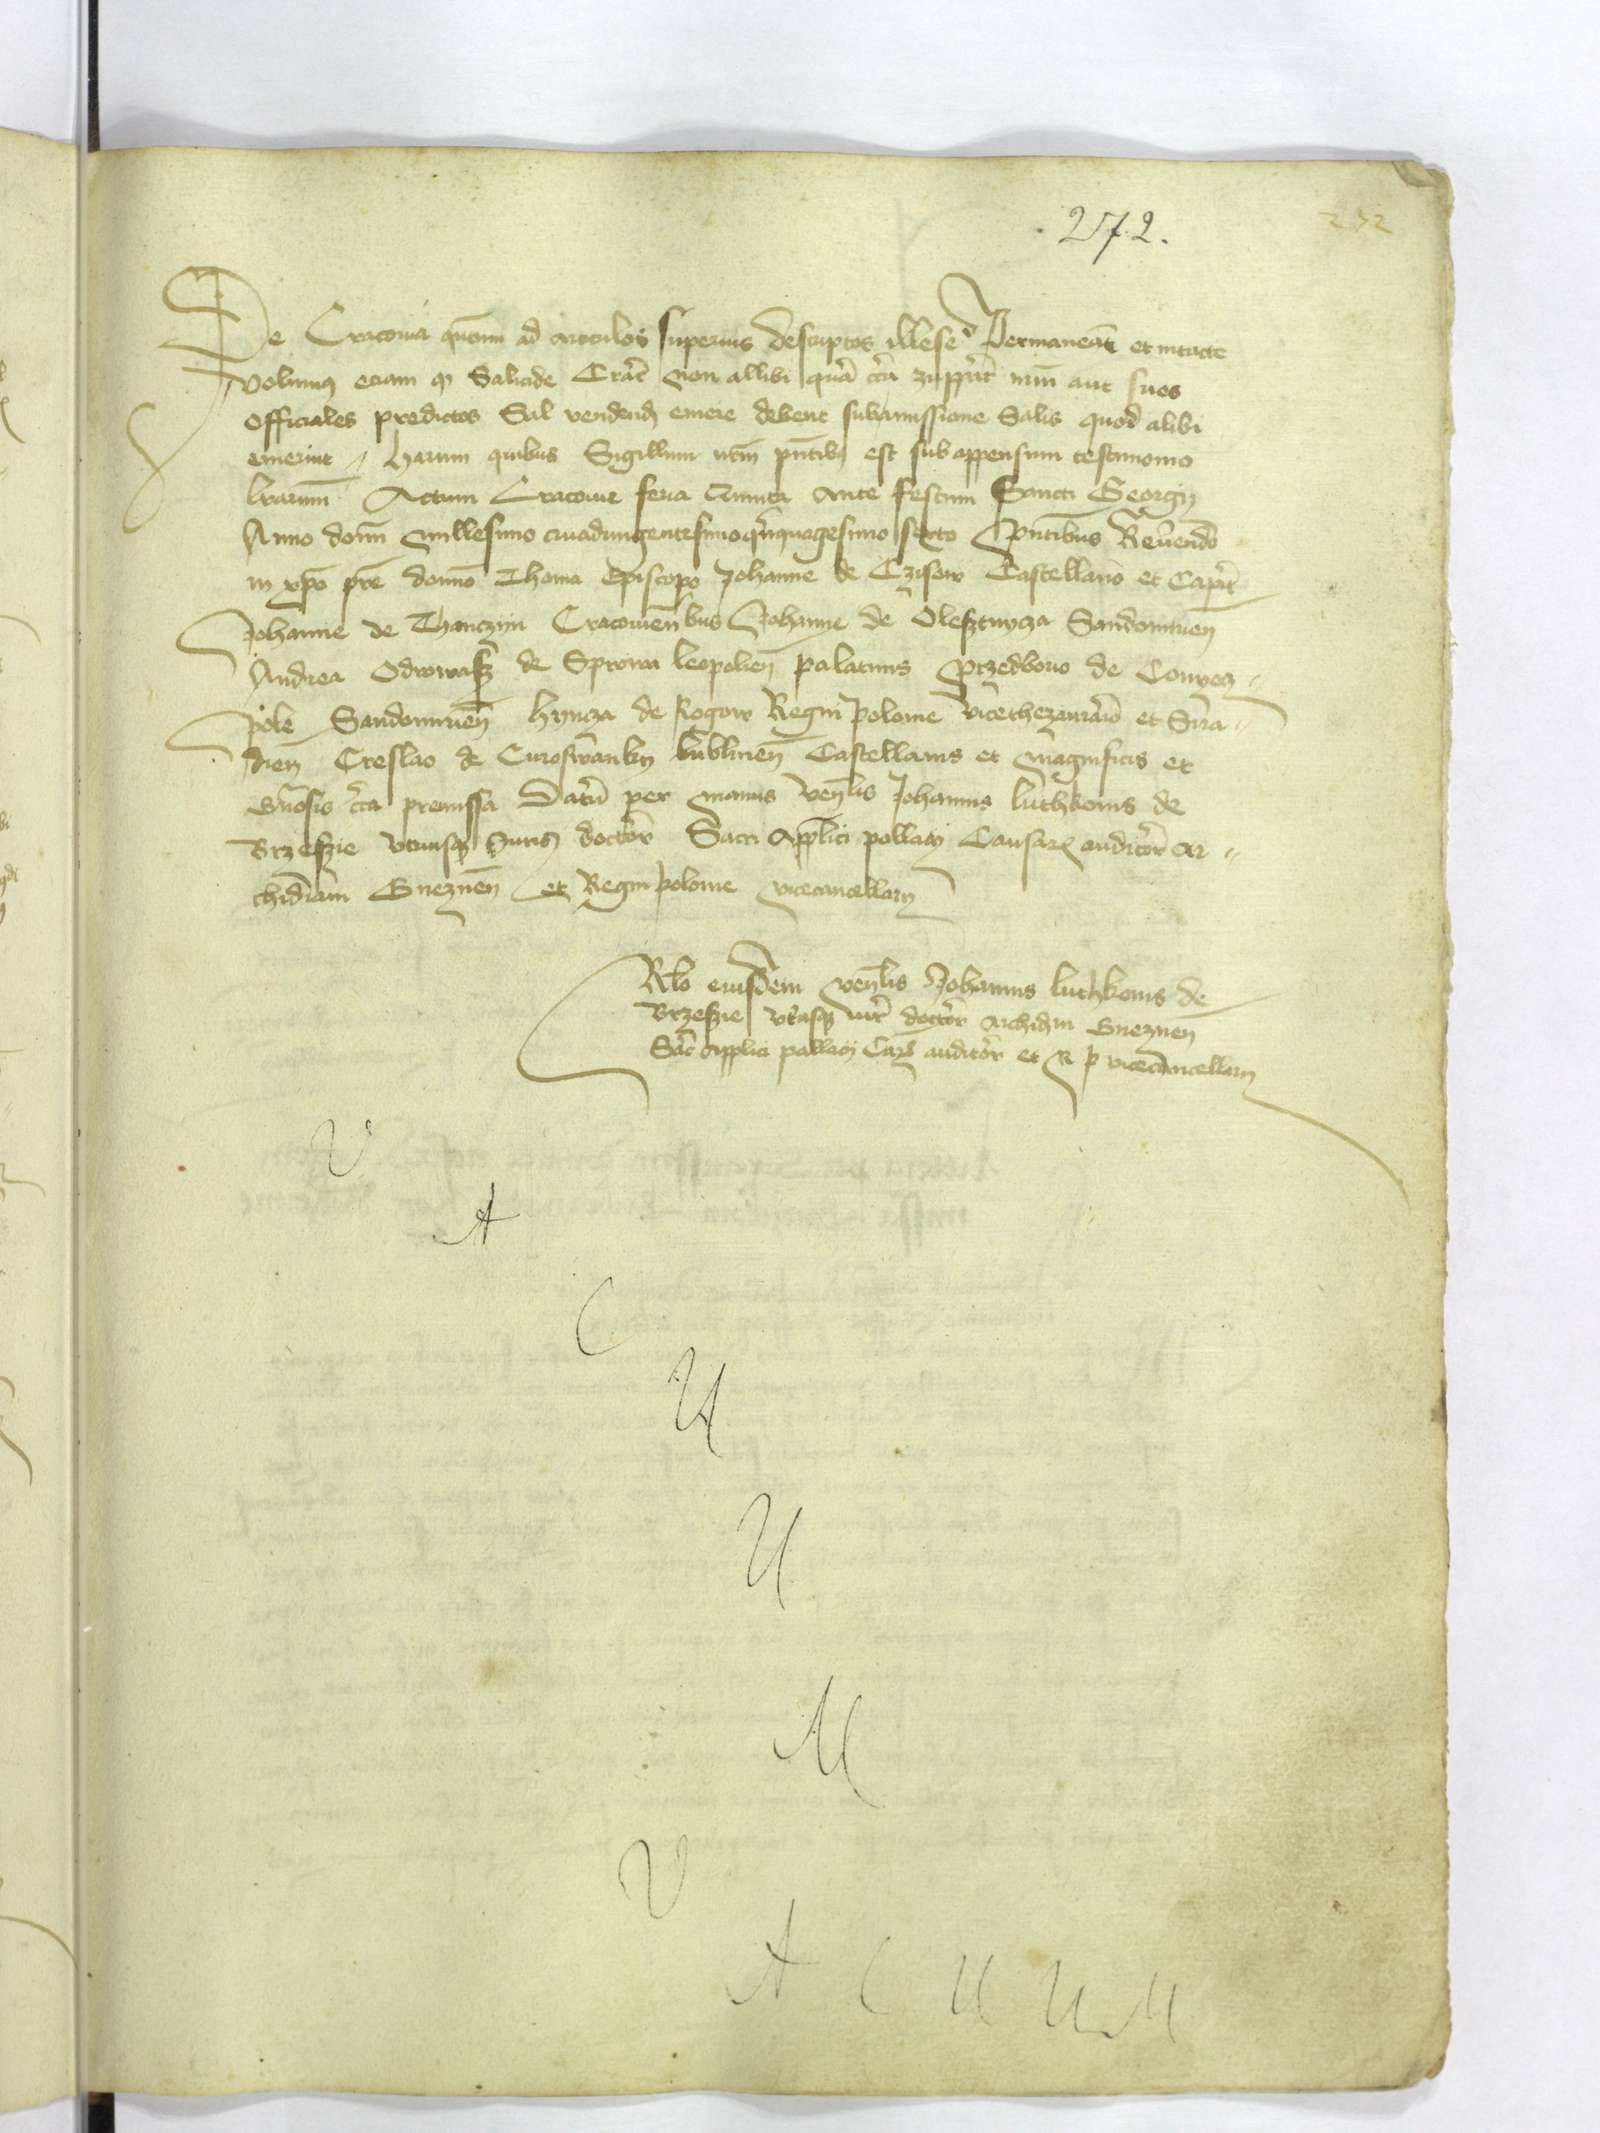 272.
272
De Cracovia quoum ad articulos superius descriptos illese permaneant et intacte
volumus eciam quod Salicide Crac non allibi quam circa zupparium nrm aut suos
officiales predictos Sal vendend emere debent sub amissione Salis quod alibi
emerint // harum quibus Sigillum nrm pntibus est sub appensum testimonio
lrarum Actum Cracovie feria Quinta Ante festum Sancti Georgij
Anno domi Millesimo quadungentesimoquinquagesimo sexto Pntibus Reverendo
in xpo pre domno Thoma Episcopo Johanne de Czisow Castellano et Capit
Johanne de Thanczin Cracovien bus Johanne de Olesznycza Sandomirien
Andrea Odrowasz de Sprowa leopolien palatinis Przedborio de Conyecz=
pole Sandomirien Hyncza de Rogow Regni polonie vicethezaurario et Sira=
dien Creslao de Curoszwanky lublinen Castellanis et magnificis et
Gnosis circa premissa Datum per manus venlis Johannis luthkonis de
Brzeszie Utriusque Juris doctor Sacri Applici pallacij Causar auditor Ar=
chidiani Gneznen et Regni polonie vicecancellarij
Rlo eiusdem venlis Johannis luthkonis de
Brzeszie utriusque iur doctor archidni Gneznen
Sac applici pallacij Caus auditor et R p vicecancellarij
V
A
C
U
U
M
V
A C U U M